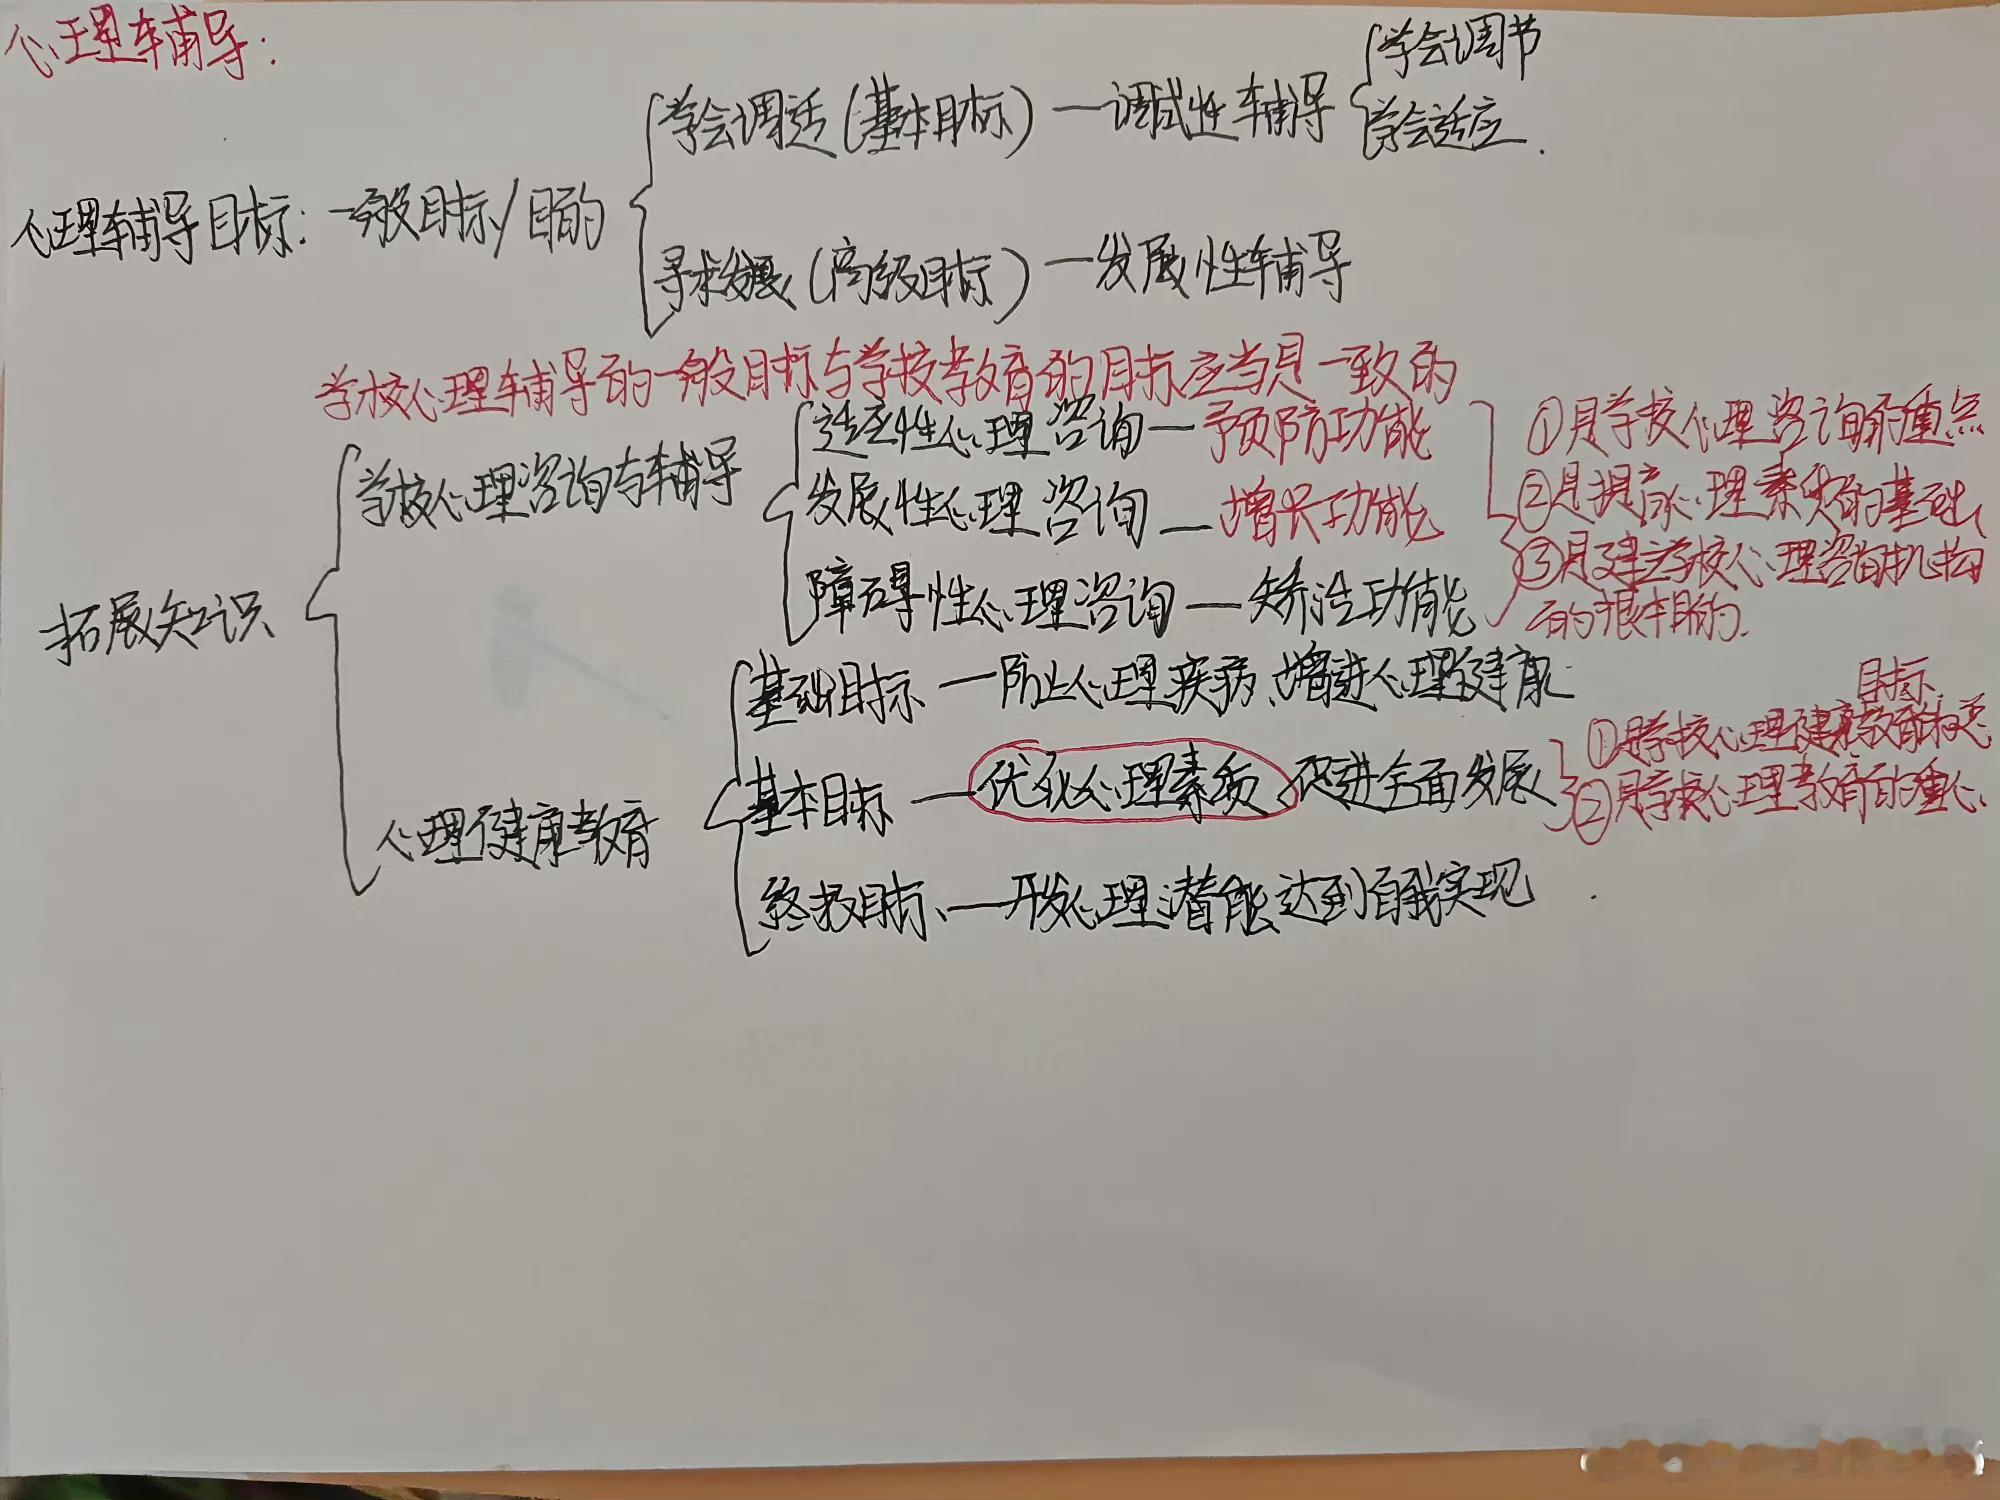 心理辅导:
学会调节
学会调适(基本目标)—调试性辅导
学会适应.
心理辅导目标:一般目标/目的
寻求发展(高级目标)—发展性辅导
学校心理辅导的一般目标与学校教育的目标应当是一致的
适应性心理咨询—预防功能
①是学校心理咨询的重点
学校心理咨询与辅导
发展性心理咨询—增长功能
②是提高心理素质的基础
③是建立学校心理咨询机构
的根本目的.
障碍性心理咨询—矫治功能
拓展知识
基础目标—防止心理疾病、增进心理健康
目标
①是学校心理健康教育
基本目标—优化心理素质、促进全面发展
②是学校心理教育的重心.
心理健康教育
终极目标、—开发心理潜能达到自我实现